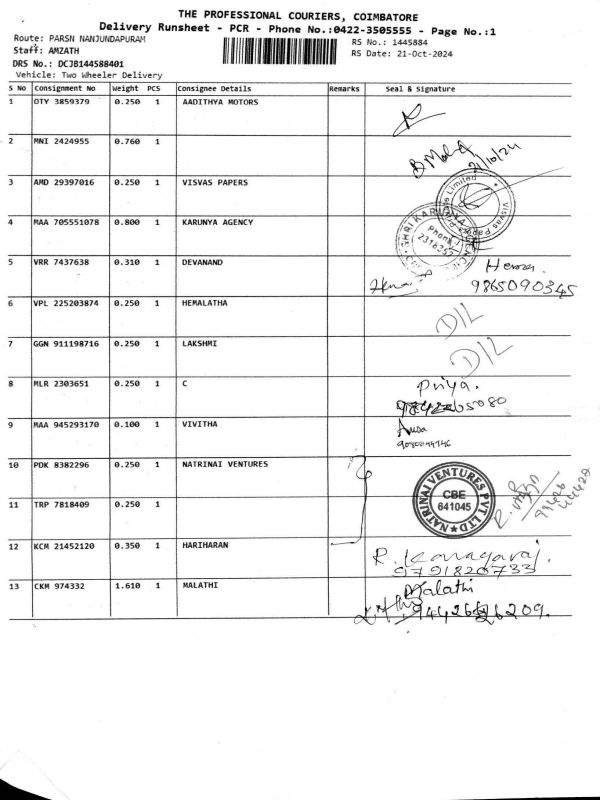 THE PROFESSIONAL COURIERS, COIMBATORE
Delivery Runsheet - PCR - Phone No.:0422-3505555 - Page No.:1
Route: PARSN NANJUNDAPURAM
RS No.: 1445884
Staff: AMZATH
RS Date: 21-Oct-2024
DRS No.: DCJB144588401
Vehicle: Two Wheeler Delivery
S No Consignment No Weight PCS Consignee Details Remarks Seal & Signature
1 OTY 3859379 0.250 1 AADITHYA MOTORS
2 MNI 2424955 0.760 1
21/10/24
3 AMD 29397016 0.250 1 VISVAS PAPERS
4 MAA 705551078 0.800 1 KARUNYA AGENCY
5 VRR 7437638 0.310 1 DEVANAND
9865090345
6 VPL 225203874 0.250 1 HEMALATHA D/L
7 GGN 911198716 0.250 1 LAKSHMI D/L
8 MLR 2303651 0.250 1 C Priya.
9 MAA 945293170 0.100 1 VIVITHA
10 PDK 8382296 0.250 1 NATRINAI VENTURES
NATRINAI VENTURES PVT LTD
CBE
641045
11 TRP 7818409 0.250 1
12 KCM 21452120 0.350 1 HARIHARAN R. Kanagaraj.
9791820733
13 CKM 974332 1.610 1 MALATHI Malathi